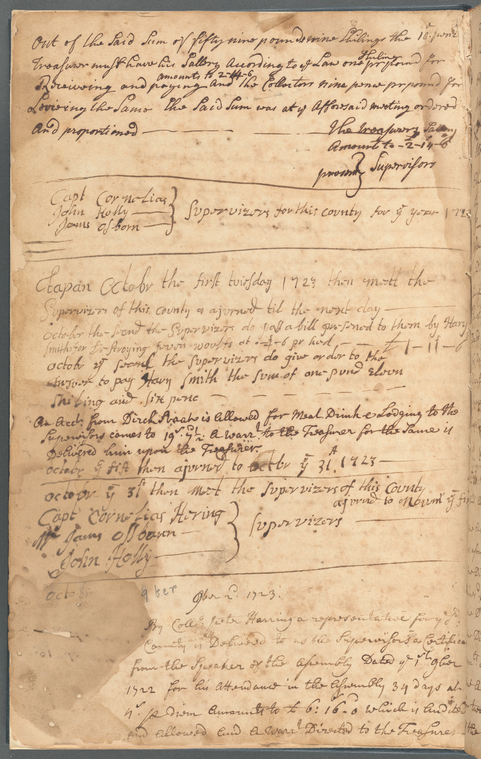 Out of the Said Sum of fifty nine pounds nine Shilings the
Treasurer must have his Sallery Acording to ye Law one Shiling pr pound for
amounts to 2-14-6
Receiveing and paying And the Collectors nine pence pr pound for
Levieing the Same The Said Sum was at ye Afforesaid meeting ordered
And proportined
The treasurers Salery
Amount to - 2 - 14 - 6
Supervisors
Capt Cornelias
John Holly
Jams Osborn
Supervizers for this County for ye year
Tapan Octobr the first tuesday 1723 then mett the
Supervizers of this County & ajorned til the next day
October the second the Supervizers do pass a bill presened to them by Hary
Smith for destroying seven woolfs at pr hed,
octobr ye second the Supervizers do give order to the
to pay Hary Smith the Sum of one pund eleven
Shiling and Six penc
An Acct. from Dirck Straats is Allowed for Meal Drink & Lodging to the
Supervisors comes to A warrt. to the Treasurer for the Same is
Delivered him upon the Treasurer.
octobr ye then ajornd to octbr ye 31, 1723
octobr ye 31t then mett the Supervizers of this County
ajornd to
Capt Cornelias Hering
Mr Jams Osborn
John Holly
Supervizers
octobr 9ber
9ber 2d. 1723.
By Colle. Peter Harring a representative for
County is Delivered to us the Supervisors a Certifica
from the Speaker of the Assembly Dated ye 1st 9ber
1722 for his Attendance in the Assembly 34 days at
pr diem Amounts to £ 6: 16: 0 which is Audited
and Allowed And A warrt Directed to the Treasurer